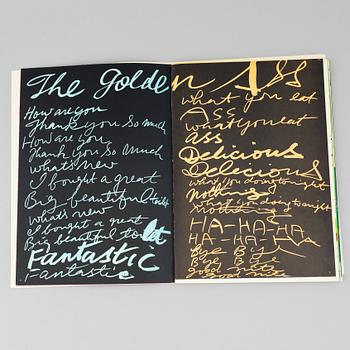 The Golden Ass
How are you
Thank you so much
How are you
Thank you So Much
what's new
I bought a great
Big beautiful toilet
what's new
I bought a great
Big beautiful toilet
Fantastic
Fantastic
what you eat
Ass
what you eat
ass
Delicious
Delecious
what you doing tonight
Nothing
what you doing tonight
Nothing
HA-HA-HA
HA-HA-HA
Bye Bye
Bye Bye
good nite
good nite